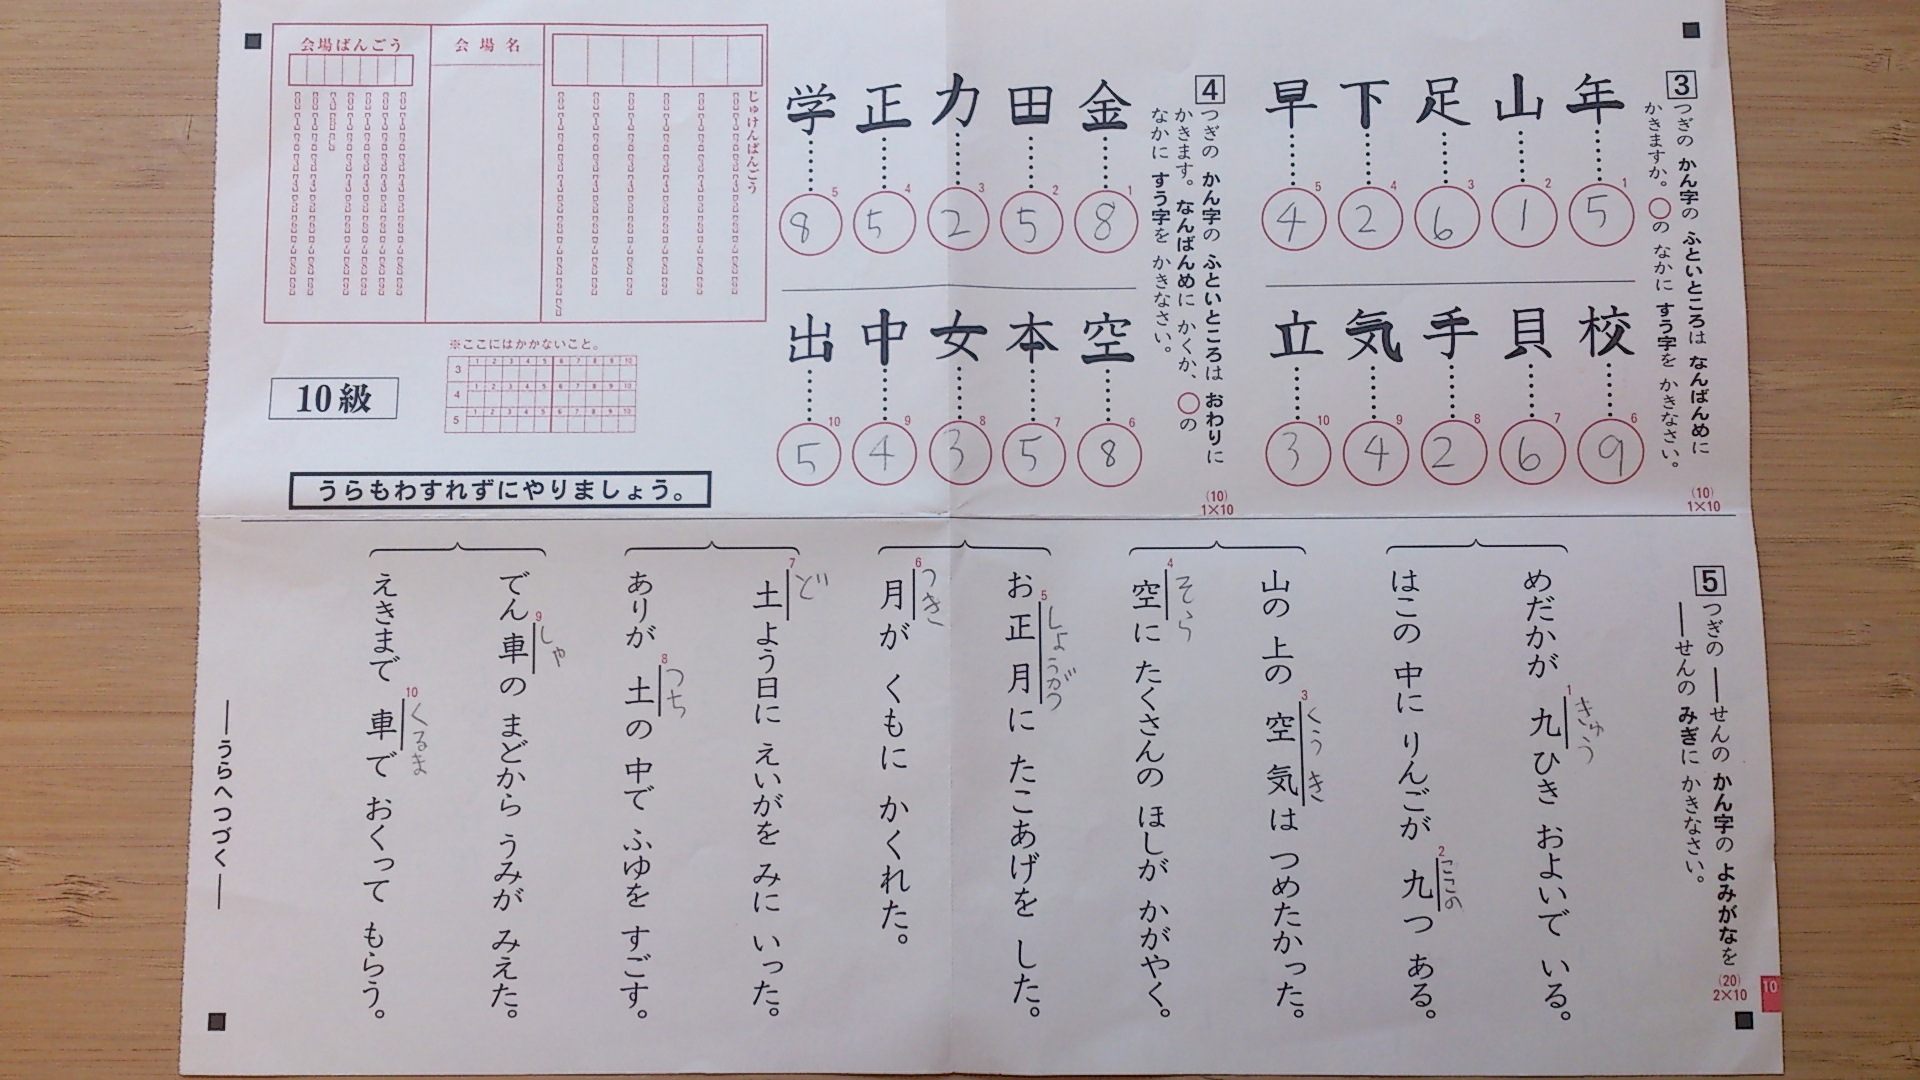 3
つぎの かん字の ふといところは なんばんめに
かきますか。○の なかに すう字を かきなさい。
(10)
1×10
年 1 5
山 2 1
足 3 6
下 4 2
早 5 4
校 6 9
貝 7 6
手 8 2
気 9 4
立 10 3
4
つぎの かん字の ふといところは おわりに
かきます。なんばんめに かくか、○の
なかに すう字を かきなさい。
(10)
1×10
金 1 8
田 2 5
力 3 2
正 4 5
学 5 8
空 6 8
本 7 5
女 8 3
中 9 4
出 10 5
じゅけんばんごう
会場名
会場ばんごう
※ここにはかかないこと。
1 2 3 4 5 6 7 8 9 10
3
1 2 3 4 5 6 7 8 9 10
4
1 2 3 4 5 6 7 8 9 10
5
10級
うらもわすれずにやりましょう。
5
つぎの ――せんの かん字の よみがなを
――せんの みぎに かきなさい。
(20)
2×10
10
1 きゅう
めだかが 九ひき およいで いる。
2 ここの
はこの 中に りんごが 九つ ある。
3 くうき
山の 上の 空気は つめたかった。
4 そら
空に たくさんの ほしが かがやく。
5 しょうがつ
お正月に たこあげを した。
6 つき
月が くもに かくれた。
7 ど
土よう日に えいがを みに いった。
8 つち
ありが 土の 中で ふゆを すごす。
9 しゃ
でん車の まどから うみが みえた。
10 くるま
えきまで 車で おくって もらう。
――うらへつづく――